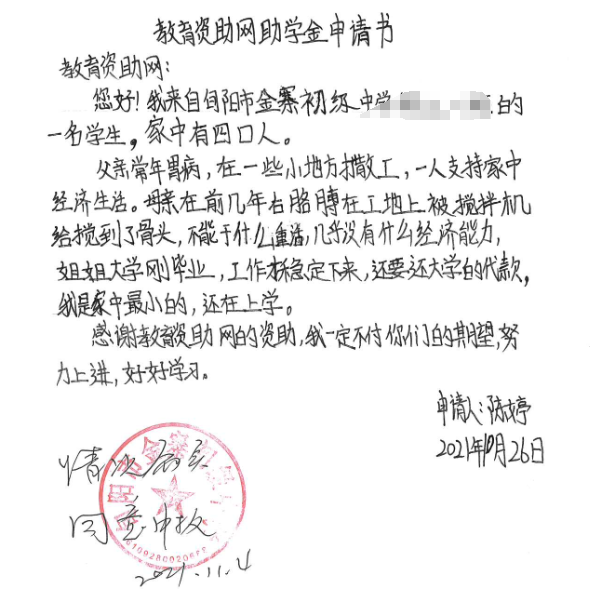 教育资助网助学金申请书
教育资助网:
您好!我来自旬阳市金寨初级中学 的
一名学生,家中有四口人。
父亲常年胃病,在一些小地方打散工,一人支持家中
经济生活。母亲在前几年右胳膊在工地上被搅拌机
给搅到了骨头,不能干什么重活,几乎没有什么经济能力,
姐姐大学刚毕业,工作才稳定下来,还要还大学的代款,
我是家中最小的,还在上学。
感谢教育资助网的资助,我一定不付你们的期望,努
力上进,好好学习。
申请人:陈婷
2021年10月26日
情况属实
同意申报
2021.11.4